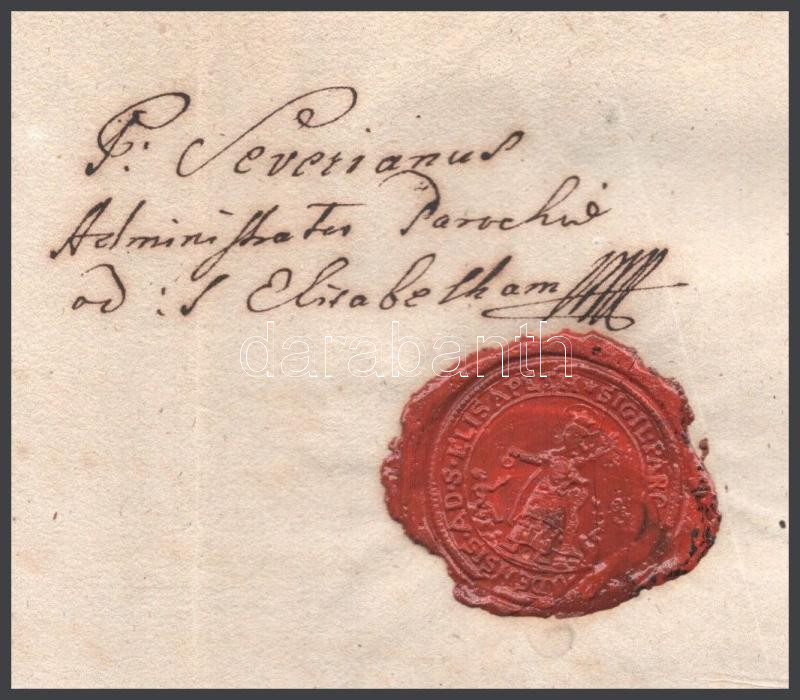 P: Severianus
Administrator Parochiæ
ad : S Elisabetham
darabanth
SIGIL PARO
DENSIS AD S ELISAB